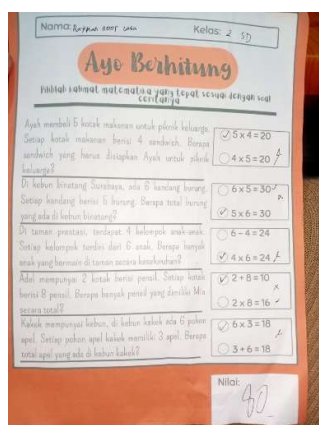 Nama:
Kelas: 2 SD
Ayo Berhitung
Pilihlah kalimat matematika yang tepat sesuai dengan soal
ceritanya
Ayah membeli 5 kotak makanan untuk piknik keluarga.
Setiap kotak makanan berisi 4 sandwich. Berapa
sandwich yang harus disiapkan Ayah untuk piknik
keluarga?
5 x 4 = 20
4 x 5 = 20
Di kebun binatang Surabaya, ada 6 kandang burung.
Setiap kandang berisi 5 burung. Berapa total burung
yang ada di kebun binatang?
6 x 5 = 30
5 x 6 = 30
Di taman prestasi, terdapat 4 kelompok anak-anak.
Setiap kelompok terdiri dari 6 anak. Berapa banyak
anak yang bermain di taman secara keseluruhan?
6 - 4 = 24
4 x 6 = 24
Adel mempunyai 2 kotak berisi pensil. Setiap kotak
berisi 8 pensil. Berapa banyak pensil yang dimiliki Mia
secara total?
2 + 8 = 10
2 x 8 = 16
Kakek mempunyai kebun, di kebun kakek ada 6 pohon
apel. Setiap pohon apel kakek memiliki 3 apel. Berapa
total apel yang ada di kebun kakek?
6 x 3 = 18
3 + 6 = 18
Nilai:
80